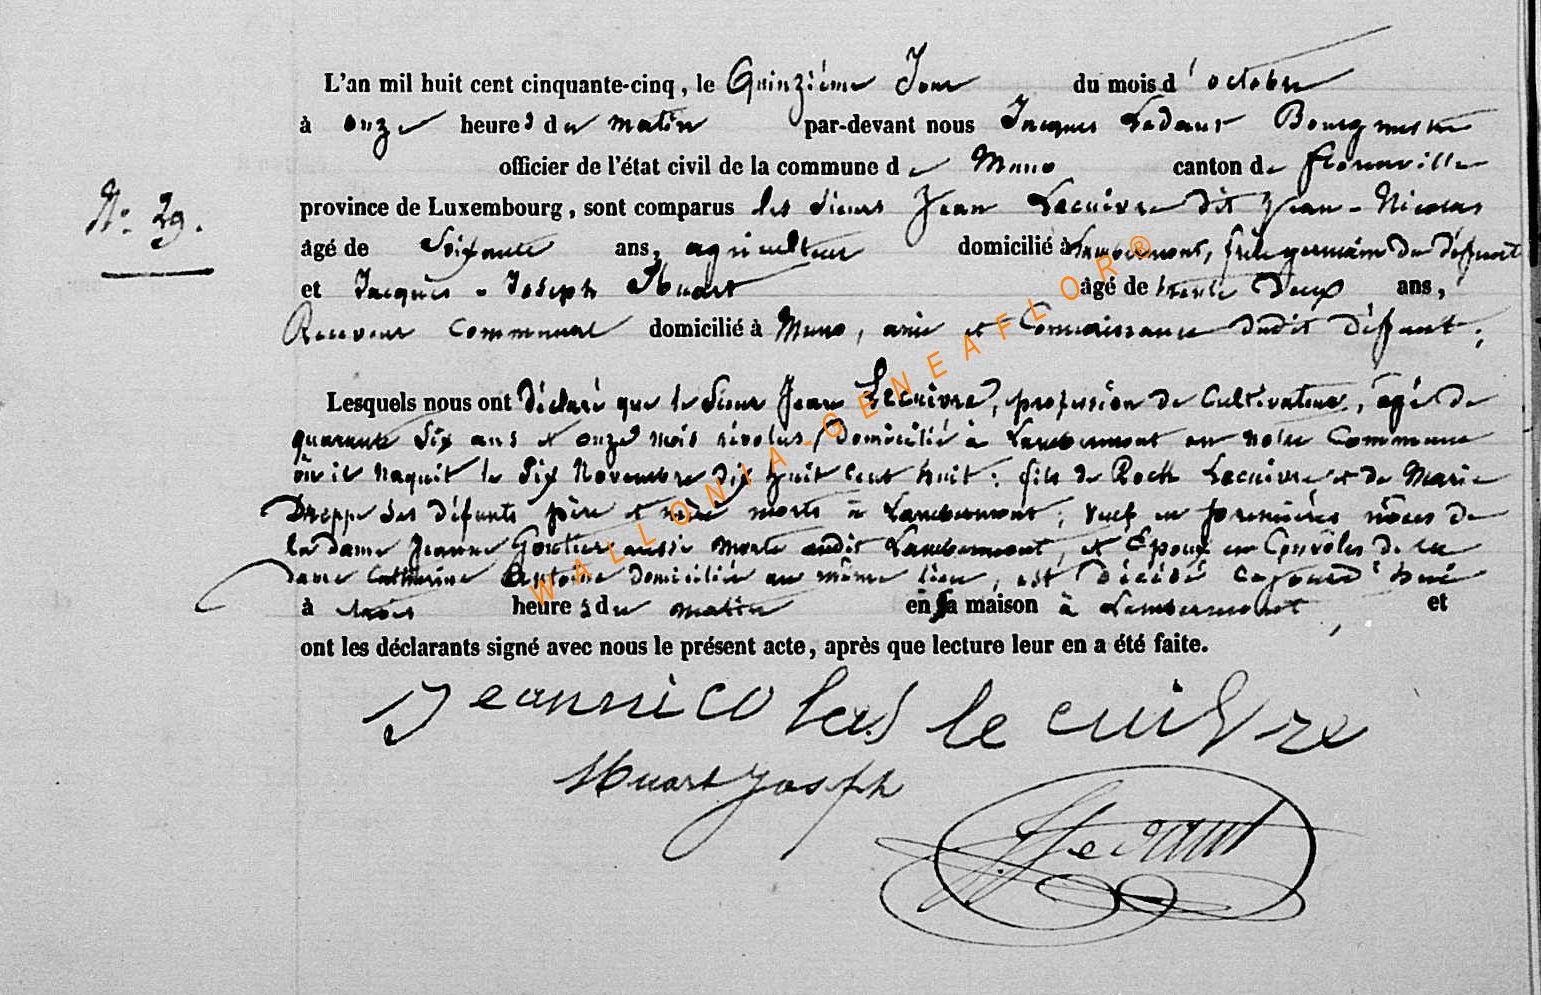 L'an mil huit cent cinquante-cinq, le Quinzième Jour du mois d'octobre
à onze heures du matin par-devant nous Jacques Ledant Bourgmestre
officier de l'état civil de la commune de Muno canton de florenville
N.° 29.
province de Luxembourg, sont comparus les Sieurs Jean Lecuivre dit Jean-Nicolas
âgé de Soixante ans, agriculteur domicilié à Lambermont, frère germain du défunt
et Jacques-Joseph Huart âgé de trente deux ans,
Receveur Communal domicilié à Muno, amie et Connaissance dudit défunt;
Lesquels nous ont déclaré que le Sieur Jean Lecuivre, profession de Cultivateur, âgé de
quarante Six ans et onze mois révolus, domicilié à Lambermont en notre Commune
où il naquit le Six Novembre dix huit cent huit; fils de Roch Lecuivre et de Marie
Dreppe Ses défunts père et mère morts à Lambermont; veuf en premières nôces de
la dame Jeanne Goutier aussi morte audit Lambermont, et Epoux en Convôles de la
dame Catherine Antoine domiciliée au même lieu, est décédé cejourd'hui
à trois heures du matin en sa maison à Lambermont, et
ont les déclarants signé avec nous le présent acte, après que lecture leur en a été faite.
Jeannicolas le cuivre
Huart Joseph
J. Ledant
WALLONIA-GENEAFLOR®